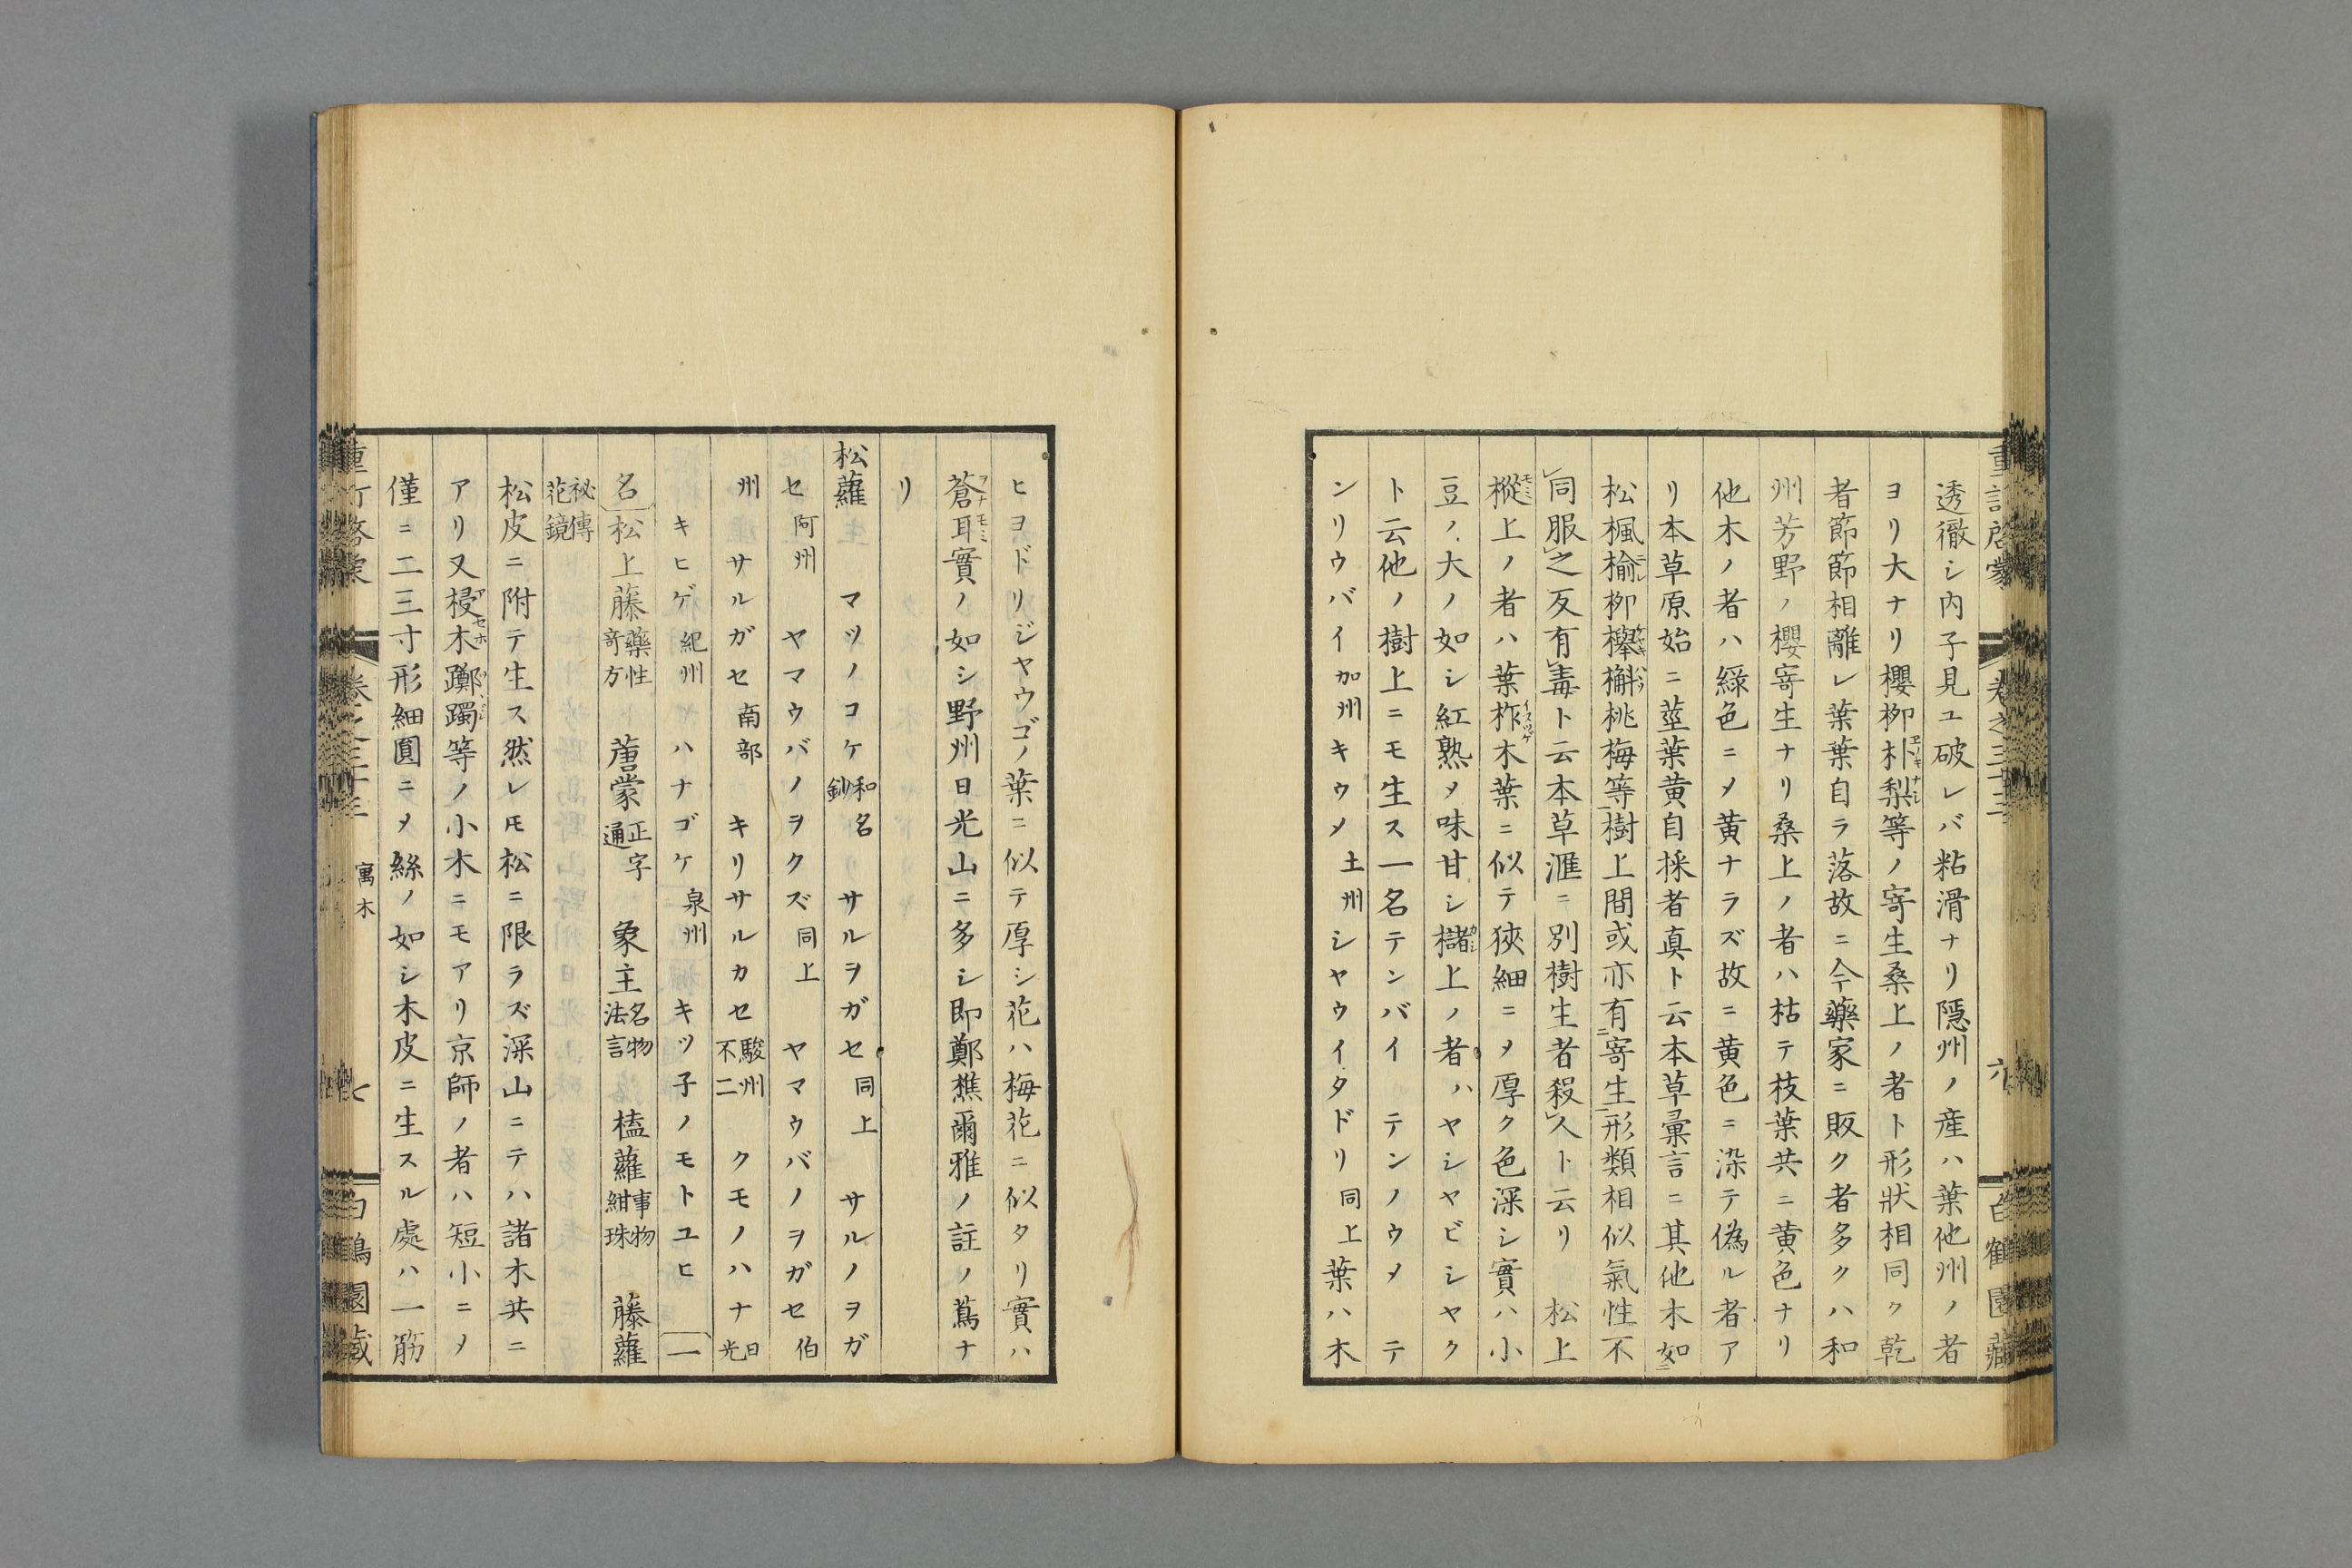 透徹シ内子見ユ破レバ粘滑ナリ隱州ノ産ハ葉他州ノ者
ヨリ大ナリ櫻柳朴梨等ノ寄生桑上ノ者ト形狀相同ク乾
者節節相離レ葉葉自ラ落故ニ今藥家ニ販ク者多クハ和
州芳野ノ櫻寄生ナリ桑上ノ者ハ枯テ枝葉共ニ黄色ナリ
他木ノ者ハ綠色ニメ黄ナラズ故ニ黄色ニ染テ偽ル者ア
リ本草原始ニ莖葉黄自採者真ト云本草彙言ニ其他木如
松楓榆柳櫸檞桃梅等樹上間或亦有寄生形類相似氣性不
同服之反有毒ト云本草滙ニ別樹生者殺人ト云リ 松上
樅上ノ者ハ葉柞木葉ニ似テ狹細ニメ厚ク色深シ實ハ小
豆ノ大ノ如シ紅熟メ味甘シ槧上ノ者ハヤシャビシャク
ト云他ノ樹上ニモ生ス一名テンバイ テンノウメ テ
ンリウバイ加州キウメ土州シャウイタドリ同上葉ハ木
卷之三十三
六
白鶴園藏
ヒヨドリジャウゴノ葉ニ似テ厚シ花ハ梅花ニ似タリ實ハ
蒼耳實ノ如シ野州日光山ニ多シ即鄭樵爾雅ノ註ノ蔦ナ
リ
松蘿 マツノコケ和名鈔 サルヲガセ同上 サルノヲガ
セ阿州 ヤマウバノヲクズ同上 ヤマウバノヲガセ伯
州 サルガセ南部 キリサルカセ駿州不二 クモノハナ日光
キヒゲ紀州 ハナゴケ泉州 キツ子ノモトユヒ 一
名松上藤藥性奇方 蓎蒙正字通 象主名物法言 榼蘿事物紺珠 藤蘿
祕傳花鏡
松皮ニ附テ生ス然レ𪜈松ニ限ラズ深山ニテハ諸木共ニ
アリ又梫木躑躅等ノ小木ニモアリ京師ノ者ハ短小ニメ
僅ニ二三寸形細圓ニメ絲ノ如シ木皮ニ生スル處ハ一筋
寓木
七